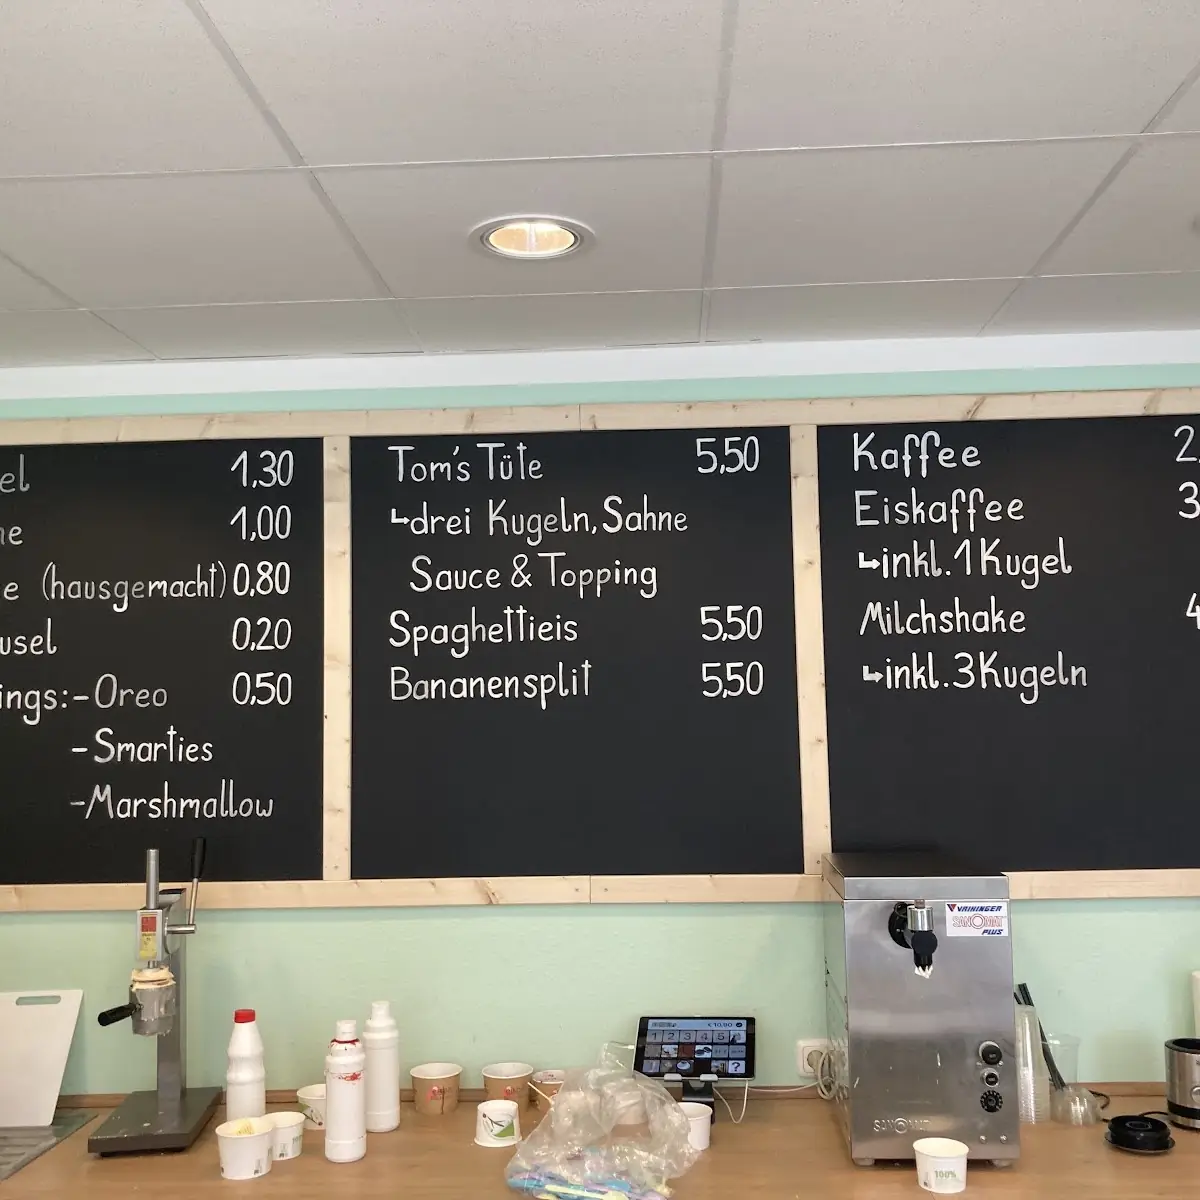 1,30
1,00
(hausgemacht) 0,80
0,20
-Oreo 0,50
-Smarties
-Marshmallow
Tom's Tüte 5,50
↳drei Kugeln, Sahne
Sauce & Topping
Spaghettieis 5,50
Bananensplit 5,50
Kaffee
Eiskaffee
↳inkl. 1 Kugel
Milchshake
↳inkl. 3 Kugeln
VAIHINGER
SANOMAT
PLUS
SANOMAT
€ 10,90
1 2 3 4 5
?
100%